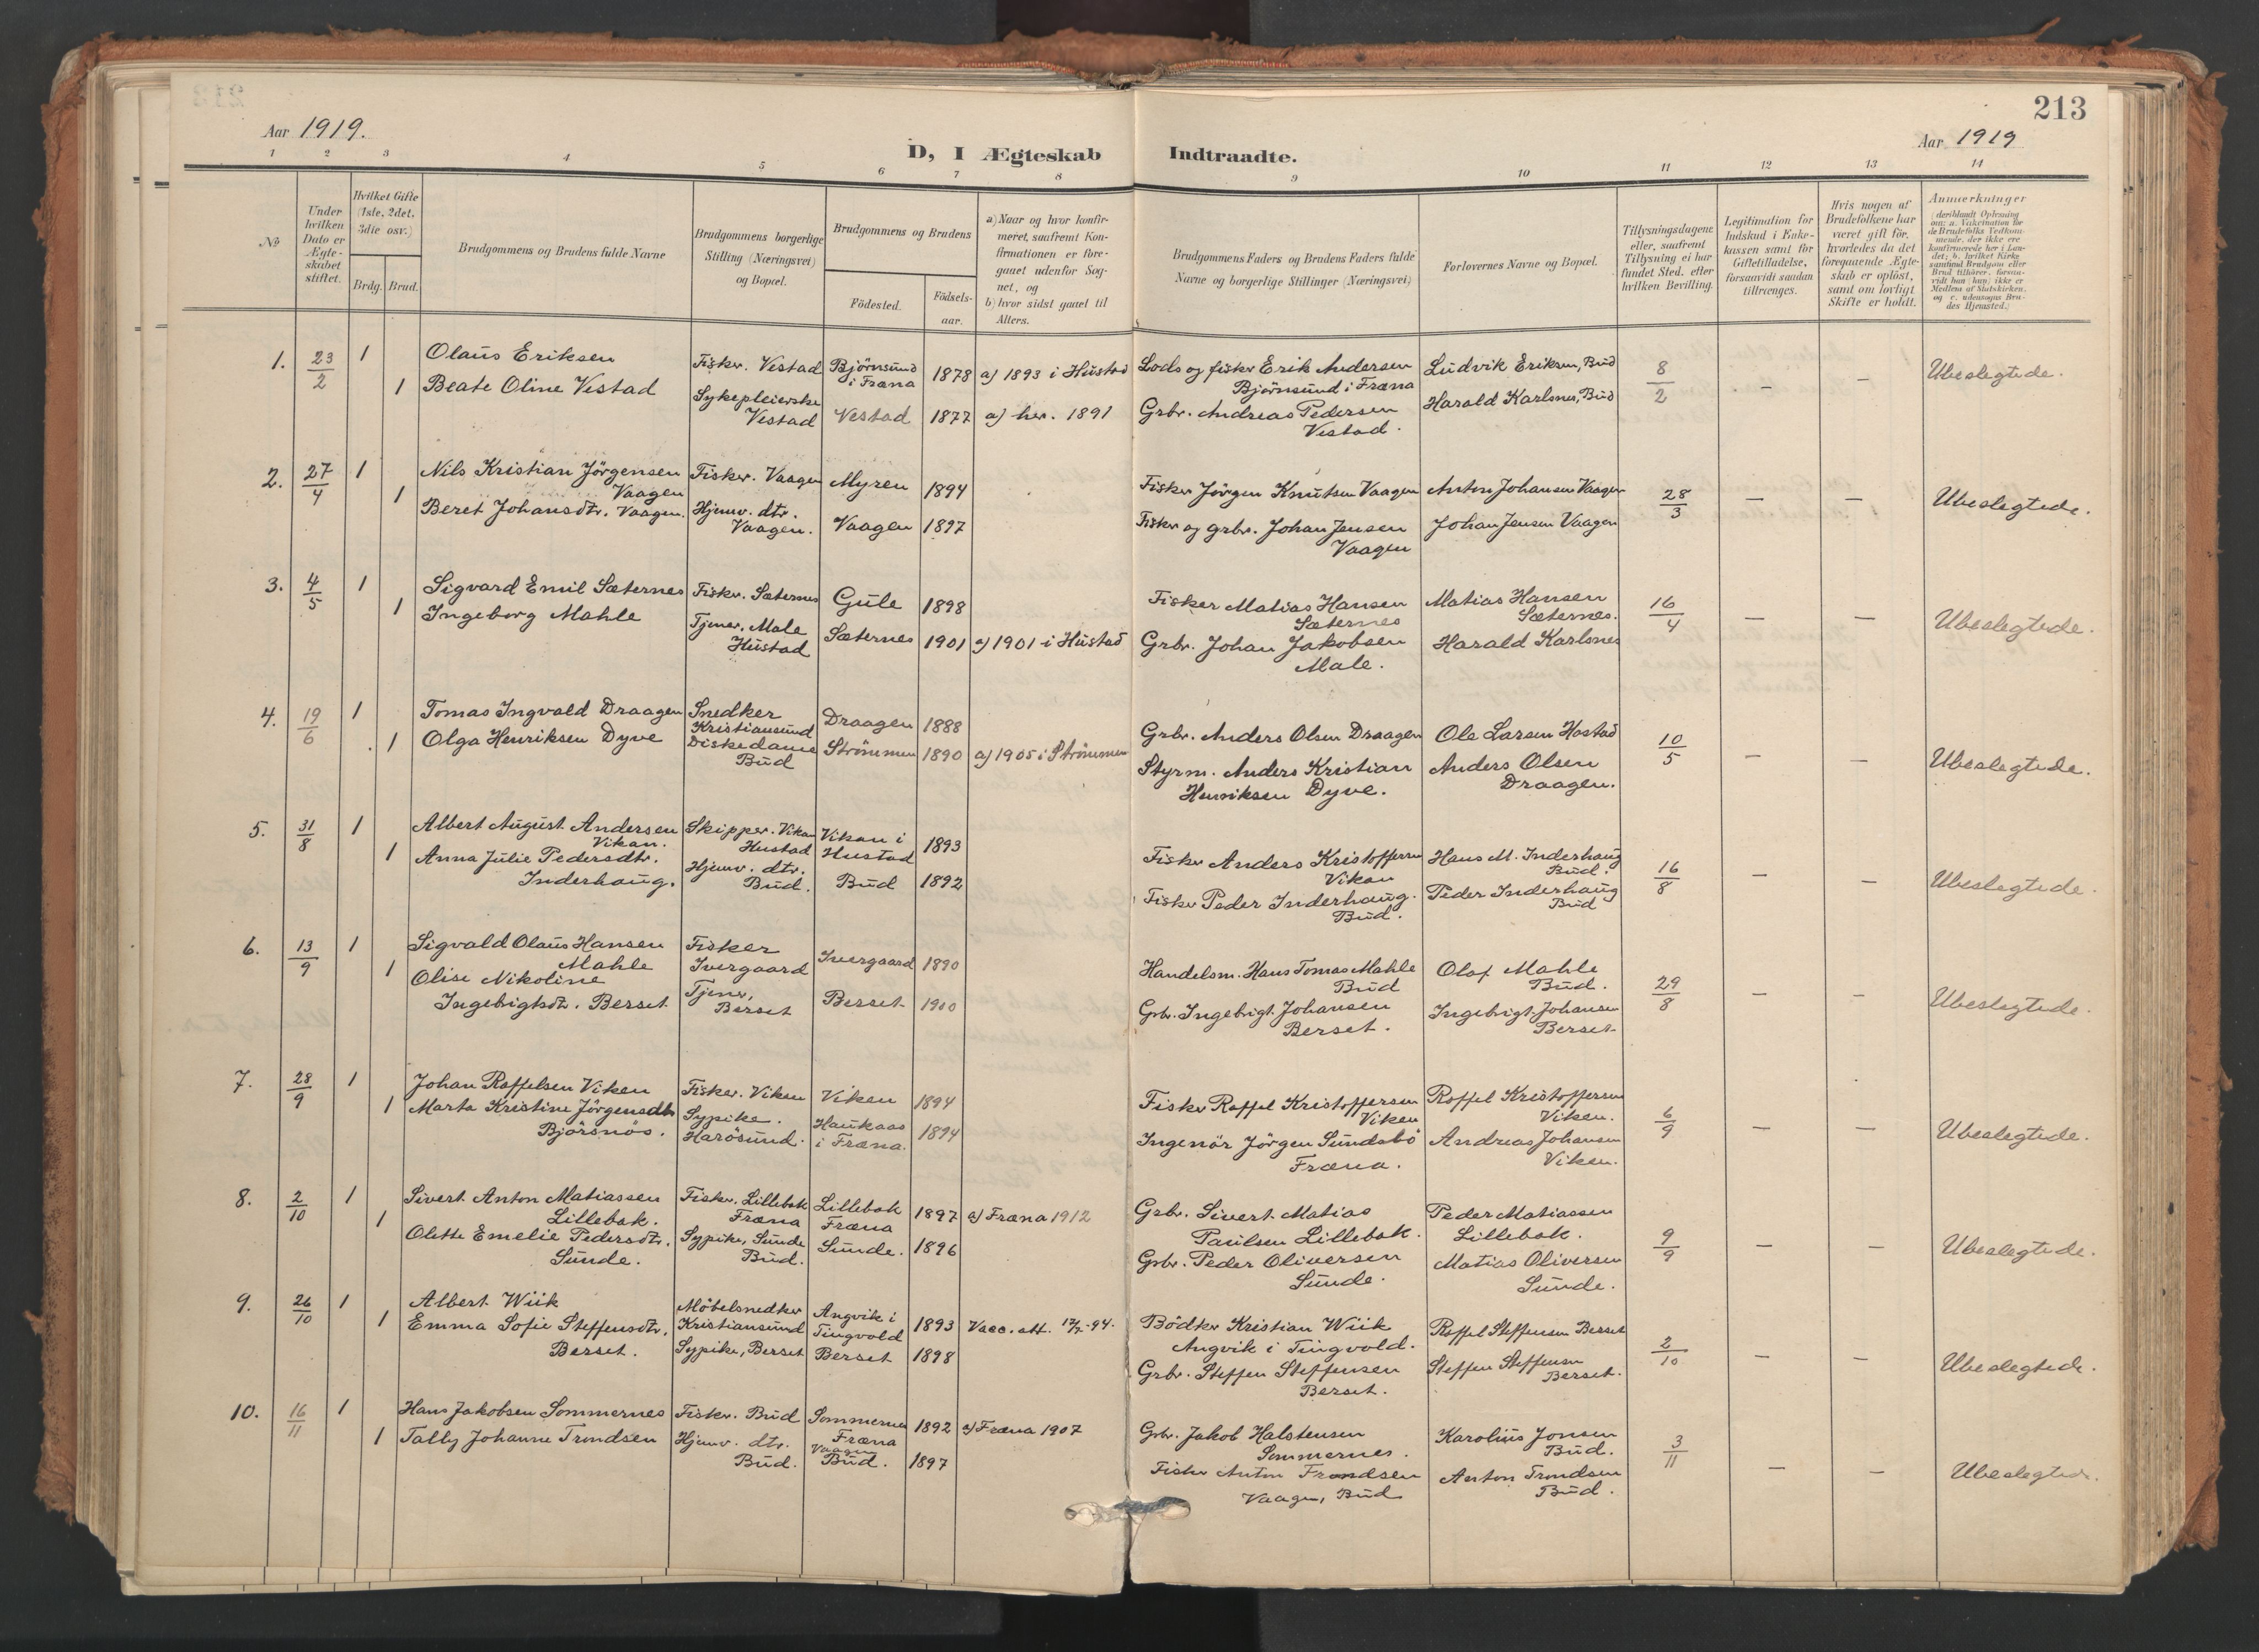 213
Aar 1919.
Aar 1919
D, I Ægteskab Indtraadte.
1 2 3 4 5 6 7 8 9 10 11 12 13 14
No
Under hvilken Dato er Ægteskabet stiftet.
Hvilket Gifte (1ste, 2det, 3die osv.)
Brdg. Brud.
Brudgommens og Brudens fulde Navne
Brudgommens borgerlige Stilling (Næringsvei) og Bopæl.
Brudgommens og Brudens
Födested.
Födselsaar.
a) Naar og hvor konfirmeret, saafremt Konfirmationen er foregaaet udenfor Sognet, og
b) hvor sidst gaaet til Alters.
Brudgommens Faders og Brudens Faders fulde Navne og borgerlige Stillinger (Næringsvei)
Forlovernes Navne og Bopæl.
Tillysningsdagene eller, saafremt Tillysning ei har fundet Sted, efter hvilken Bevilling.
Legitimation for Indskud i Enkekassen samt for Giftetilladelse, forsaavidt saadan tiltrænges.
Hvis nogen af Brudefolkene har været gift för, hvorledes da det foregaaende Ægteskab er oplöst, samt om lovligt Skifte er holdt.
Anmærkninger
(deriblandt Oplysning om: a. Vakcination for de Brudefolks Vedkommende, der ikke ere konfirmerede her i Landet; b. hvilket Kirkesamfund Brudgom eller Brud tilhörer, forsaavidt han (hun) ikke er Medlem af Statskirken, og c. udensogns Brudes Hjemsted.)
1. 23/2 1 Olaus Eriksen Fisker. Vestad Björnsund i Fræna 1878 a) 1893 i Hustad Lods og fisker Erik Andersen Björnsund i Fræna Ludvik Eriksen, Bud 8/2 - - Ubeslegtede.
1 Beate Oline Vestad Sykepleierske Vestad Vestad 1877 a) her. 1891 Grbr. Andreas Pedersen Vestad. Harald Karlsnes, Bud
2. 27/4 1 Nils Kristian Jörgensen Vaagen Fisker. Vaagen Myren 1894 Fisker Jörgen Knutsen Vaagen Anton Johansen Vaagen 28/3 - - Ubeslegtede.
1 Beret Johansdtr. Vaagen. Hjemv. dtr. Vaagen. Vaagen 1897 Fisker og grbr. Johan Jensen Vaagen Johan Jensen Vaagen
3. 4/5 1 Sigvard Emil Sæternes Fisker. Sæternes Gule 1898 Fisker Matias Hansen Sæternes Matias Hansen Sæternes. 16/4 - - Ubeslegtede.
1 Ingeborg Mahle Tjener. Male Hustad Sæternes 1901 a) 1901 i Hustad Grbr. Johan Jakobsen Male. Harald Karlsnes
4. 19/6 1 Tomas Ingvald Draagen Snedker Kristiansund Draagen 1888 Grbr. Anders Olsen Draagen Ole Larsen Hostad 10/5 - - Ubeslegtede.
1 Olga Henriksen Dyve Diskedame Bud Strömmen 1890 a) 1905 i Strömmen Styrm. Anders Kristian Henriksen Dyve. Anders Olsen Draagen.
5. 31/8 1 Albert August Andersen Vikan. Skipper. Vikan Hustad Vikan i Hustad 1893 Fisker Anders Kristoffersen Vikan Hans M. Inderhaug Bud. 16/8 - - Ubeslegtede.
1 Anna Julie Pedersdtr. Inderhaug. Hjemv. dtr. Bud. Bud 1892 Fisker Peder Inderhaug. Bud. Peder Inderhaug Bud
6. 13/9 1 Sigvald Olaus Hansen Mahle Fisker Ivergaard Ivergaard 1890 Handelsm. Hans Tomas Mahle Bud Olaf Mahle Bud. 29/8 - - Ubeslegtede.
1 Olise Nikoline Ingebrigtsdtr. Berset Tjener, Berset Berset 1900 Grbr. Ingebrigt Johansen Berset. Ingebrigt Johansen Berset
7. 28/9 1 Johan Roffelsen Viken Fisker. Viken Viken 1894 Fisker Roffel Kristoffersen Viken Roffel Kristoffersen Viken. 6/9 - - Ubeslegtede.
1 Marta Kristine Jörgensdtr Björsnös. Sypike. Harösund. Haukaas i Fræna. 1894 Ingenör Jörgen Sundsbö Fræna. Andreas Johansen Viken.
8. 2/10 1 Sivert Anton Matiassen Lillebak. Fisker. Lillebak Fræna Lillebak Fræna 1897 a) Fræna 1912 Grbr. Sivert Matias Paulsen Lillebak. Peder Matiassen Lillebak. 9/9 - - Ubeslegtede.
1 Olette Emelie Pedersdtr. Sunde. Sypike, Sunde Bud. Sunde. 1896 Grbr. Peder Oliversen Sunde. Matias Oliversen Sunde.
9. 26/10 1 Albert Wiik Möbelsnedker Kristiansund Angvik i Tingvold 1893 Vacc. att. -94. Bödker Kristian Wiik Angvik i Tingvold. Roffel Steffensen Berset 2/10 - - Ubeslegtede.
1 Emma Sofie Steffensdtr. Berset. Sypike, Berset Berset 1898 Grbr. Steffen Steffensen Berset. Steffen Steffensen Berset.
10. 16/11 1 Hans Jakobsen Sommernes Fisker. Bud Sommernes Fræna 1892 a) Fræna 1907 Grbr. Jakob Halstensen Sommernes. Karolius Jonsen Bud. 3/11 - - Ubeslegtede.
1 Tally Johanne Trondsen Hjemv. dtr. Bud. Vaagen Bud. 1897 Fisker Anton Trondsen Vaagen, Bud Anton Trondsen Bud.